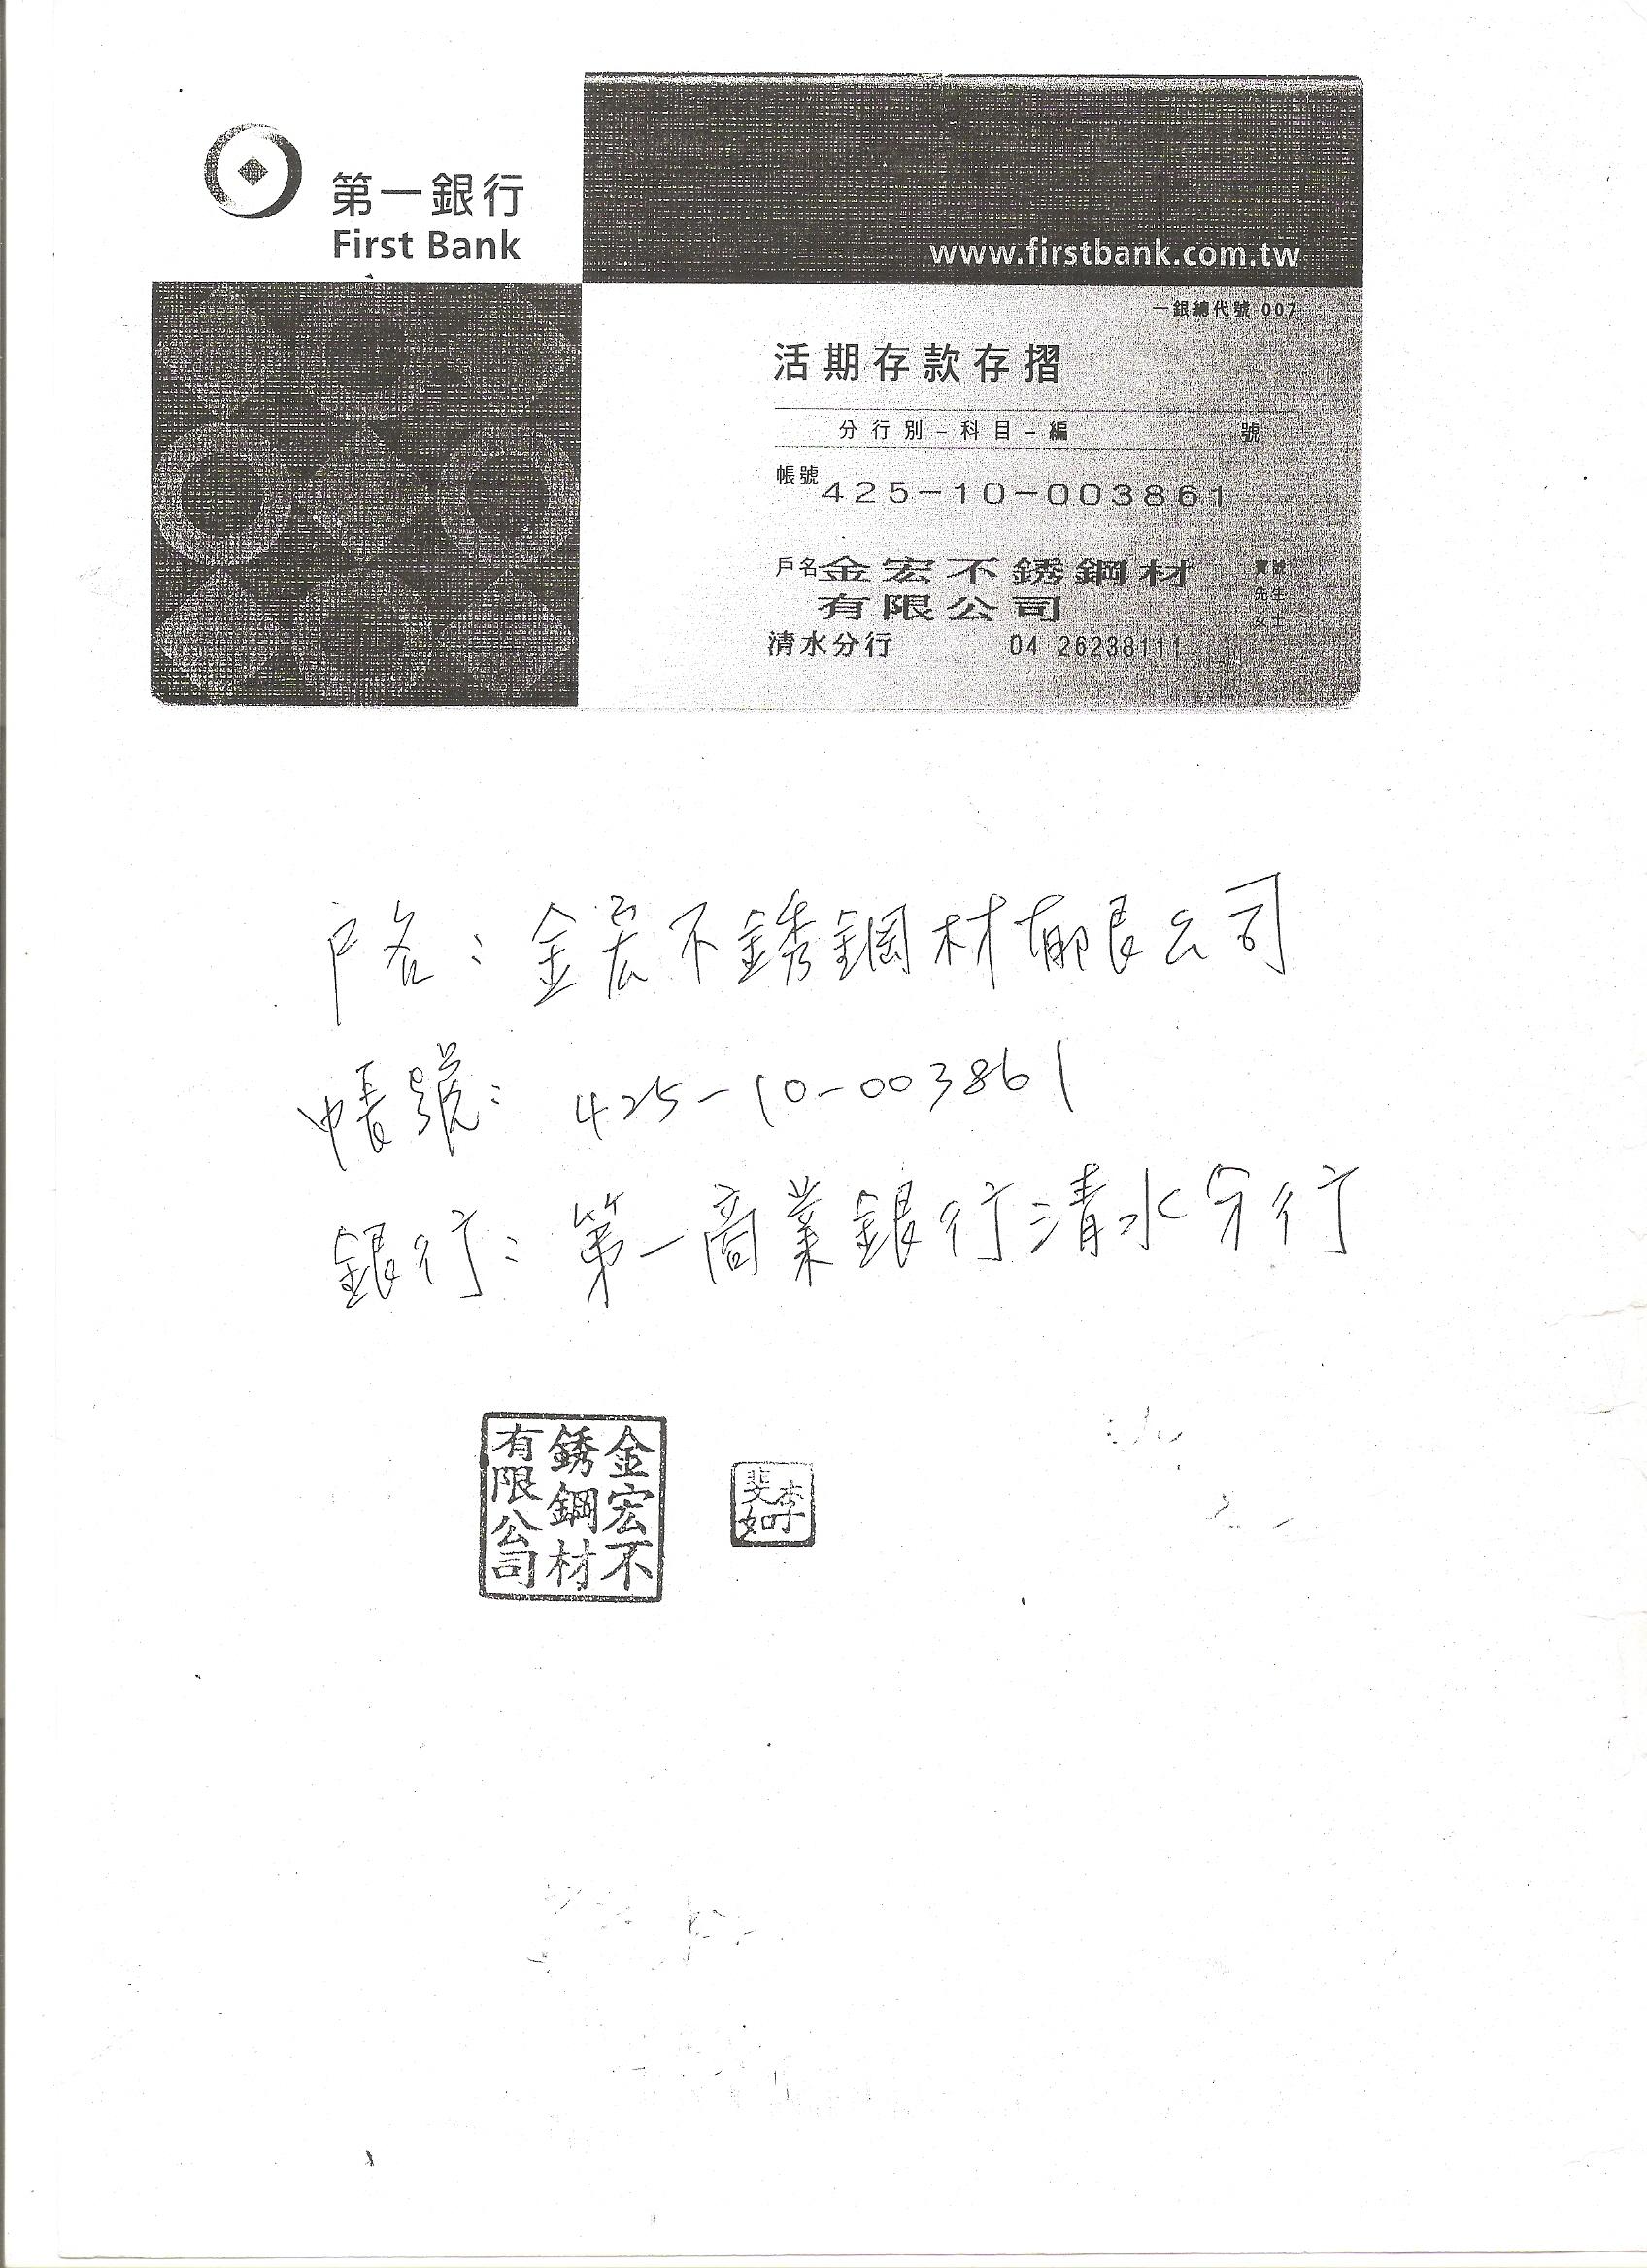 第一銀行
First Bank
www.firstbank.com.tw
一銀總代號 007
活期存款存摺
分行別-科目-編 號
帳號 425-10-003861
戶名 金宏不銹鋼材 寶號
有限公司 先生
女士
清水分行 04 26238111
戶名:金宏不銹鋼材有限公司
帳號:425-10-003861
銀行:第一商業銀行清水分行
金宏不
銹鋼材
有限公司
李
斐如